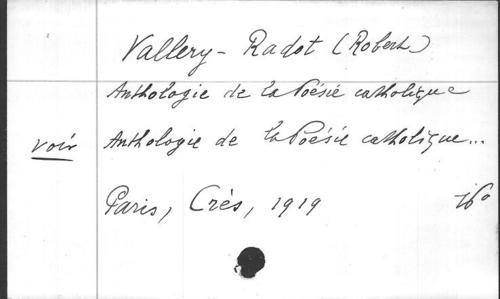 Vallery-Radot (Robert)
Anthologie de la Poésie catholique
voir Anthologie de la Poésie catholique...
Paris, Crès, 1919 16°